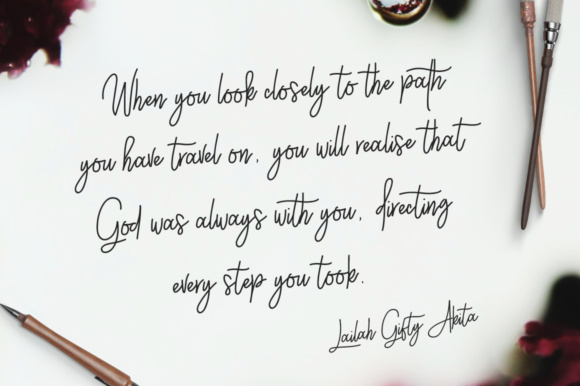 When you look closely to the path
you have travel on, you will realise that
God was always with you, directing
every step you took.
Lailah Gifty Akita